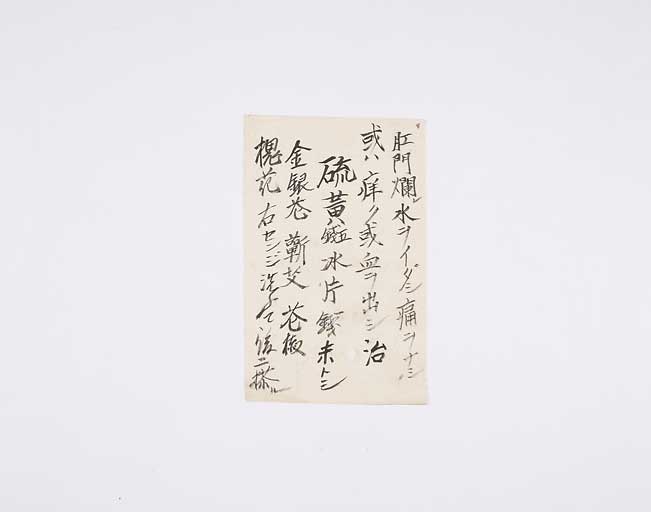 肛門爛レ水ヲイダシ痛ヲナシ
或ハ痒ク或血ヲ出シ治
硫黄 氷片 末トシ
金銀花 蘄艾 花椒
槐花 右センジ洗テ後ニ搽ル